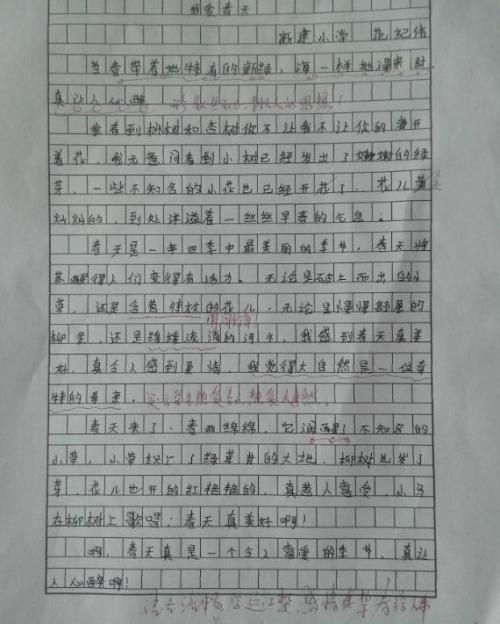 我爱春天
新建小学 花纪伟
当春带着她特有的新绿,海一样地漫来时,
真让人心醉。
我看到桃树和杏树你不让我不让你的都开
着花,我无意间看到小树已经发出了嫩嫩的绿
芽,一些不知名的小花也已经开花了。花儿黄
灿灿的,到处洋溢着一丝丝早春的气息。
春天是一年四季中最美丽的季节,春天将
苏醒得人们变得有活力。无论是破土而出的小
草,还是含苞待放的花儿,无论是慢慢舒展的
柳条,还是缓缓流淌的河水,我感到春天真美
好,真令人感到更情,我觉得大自然是一位奇
特的母亲。
春天来了,春雨绵绵,它润醒了不知名的
小草,小草织了绿草的大地,柳树也发了
芽,花儿也开的红艳艳的,真惹人喜爱,小鸟
在柳树上歌唱:春天真美好啊!
啊,春天真是一个令人喜爱的季节,真让
人心醉啊!